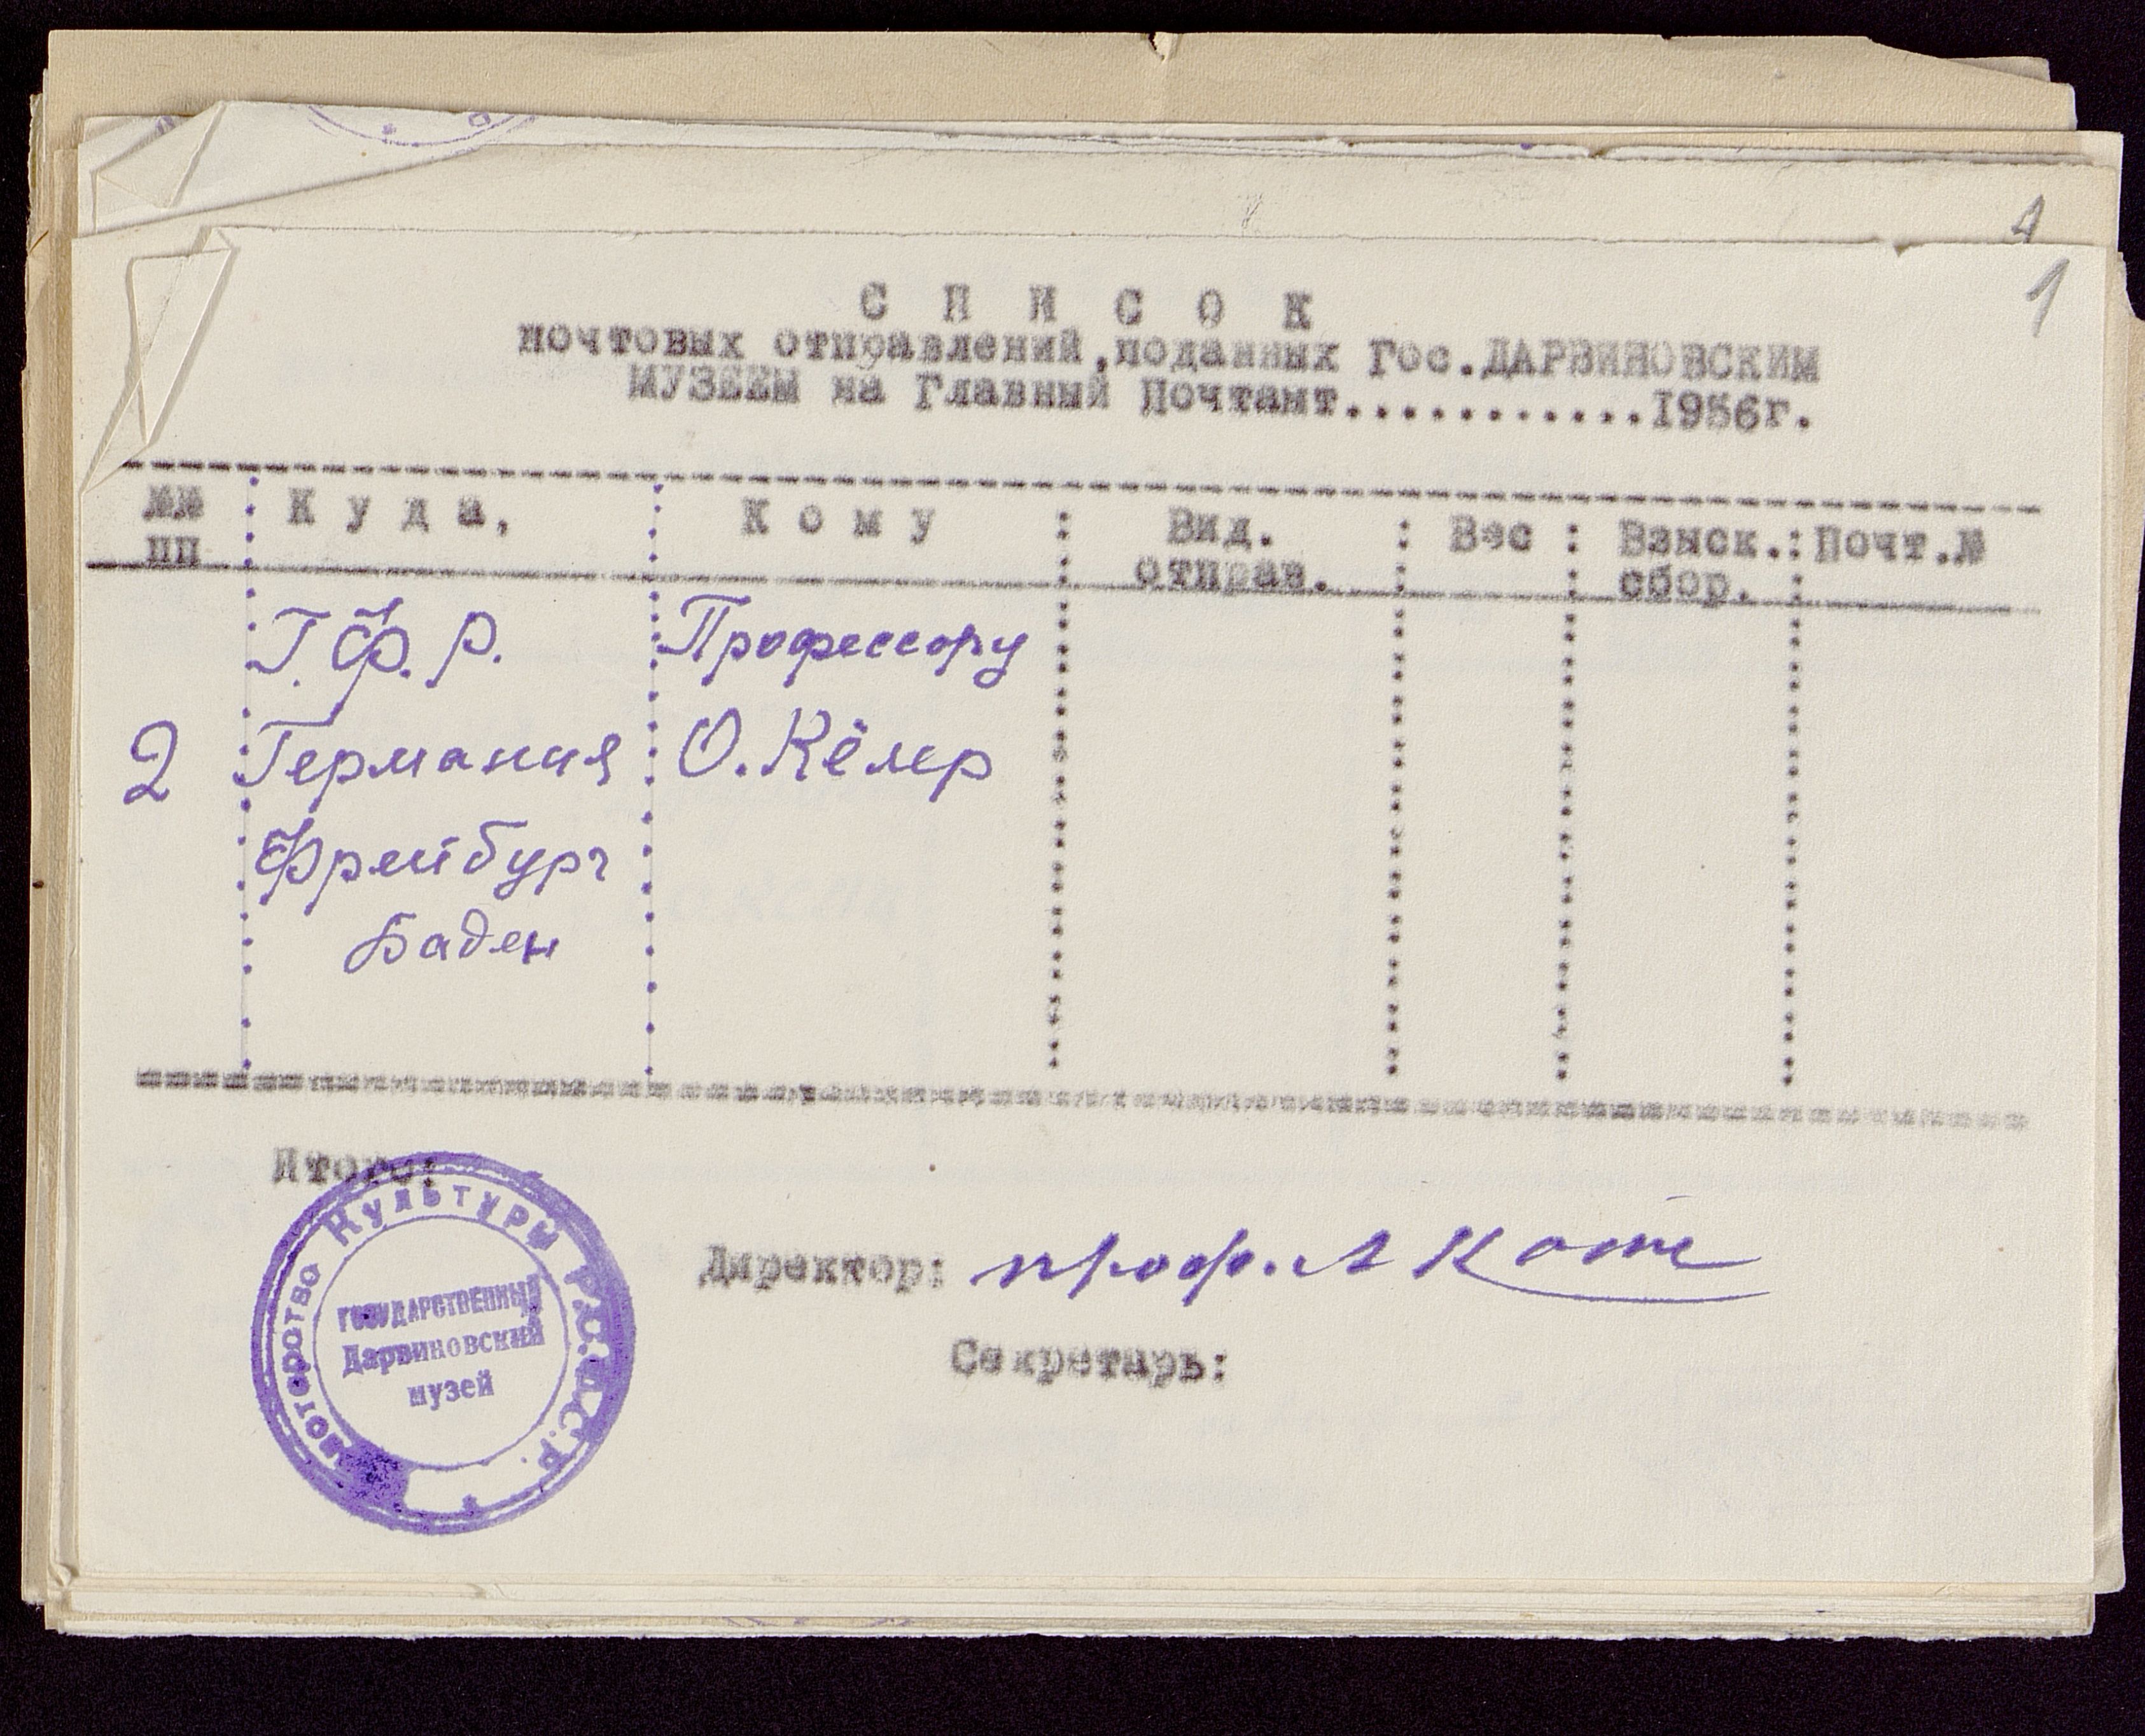 4
1
С П И С О К
почтовых отправлений,поданных Гос.ДАРВИНОВСКИМ
МУЗЕЕМ на Главный Почтамт............1956г.
№№ пп : К у д а, : К о м у : Вид. отправ. : Вес : Взыск. сбор. : Почт.№
Г.Ф.Р. Профессору
2 Германия О. Кёлер
Фрейбург
Баден
Итого:
Директор: проф. А Котс
Секретарь:
Министерство Культуры Р.С.Ф.С.Р.
ГОСУДАРСТВЕННЫЙ
Дарвиновский
музей